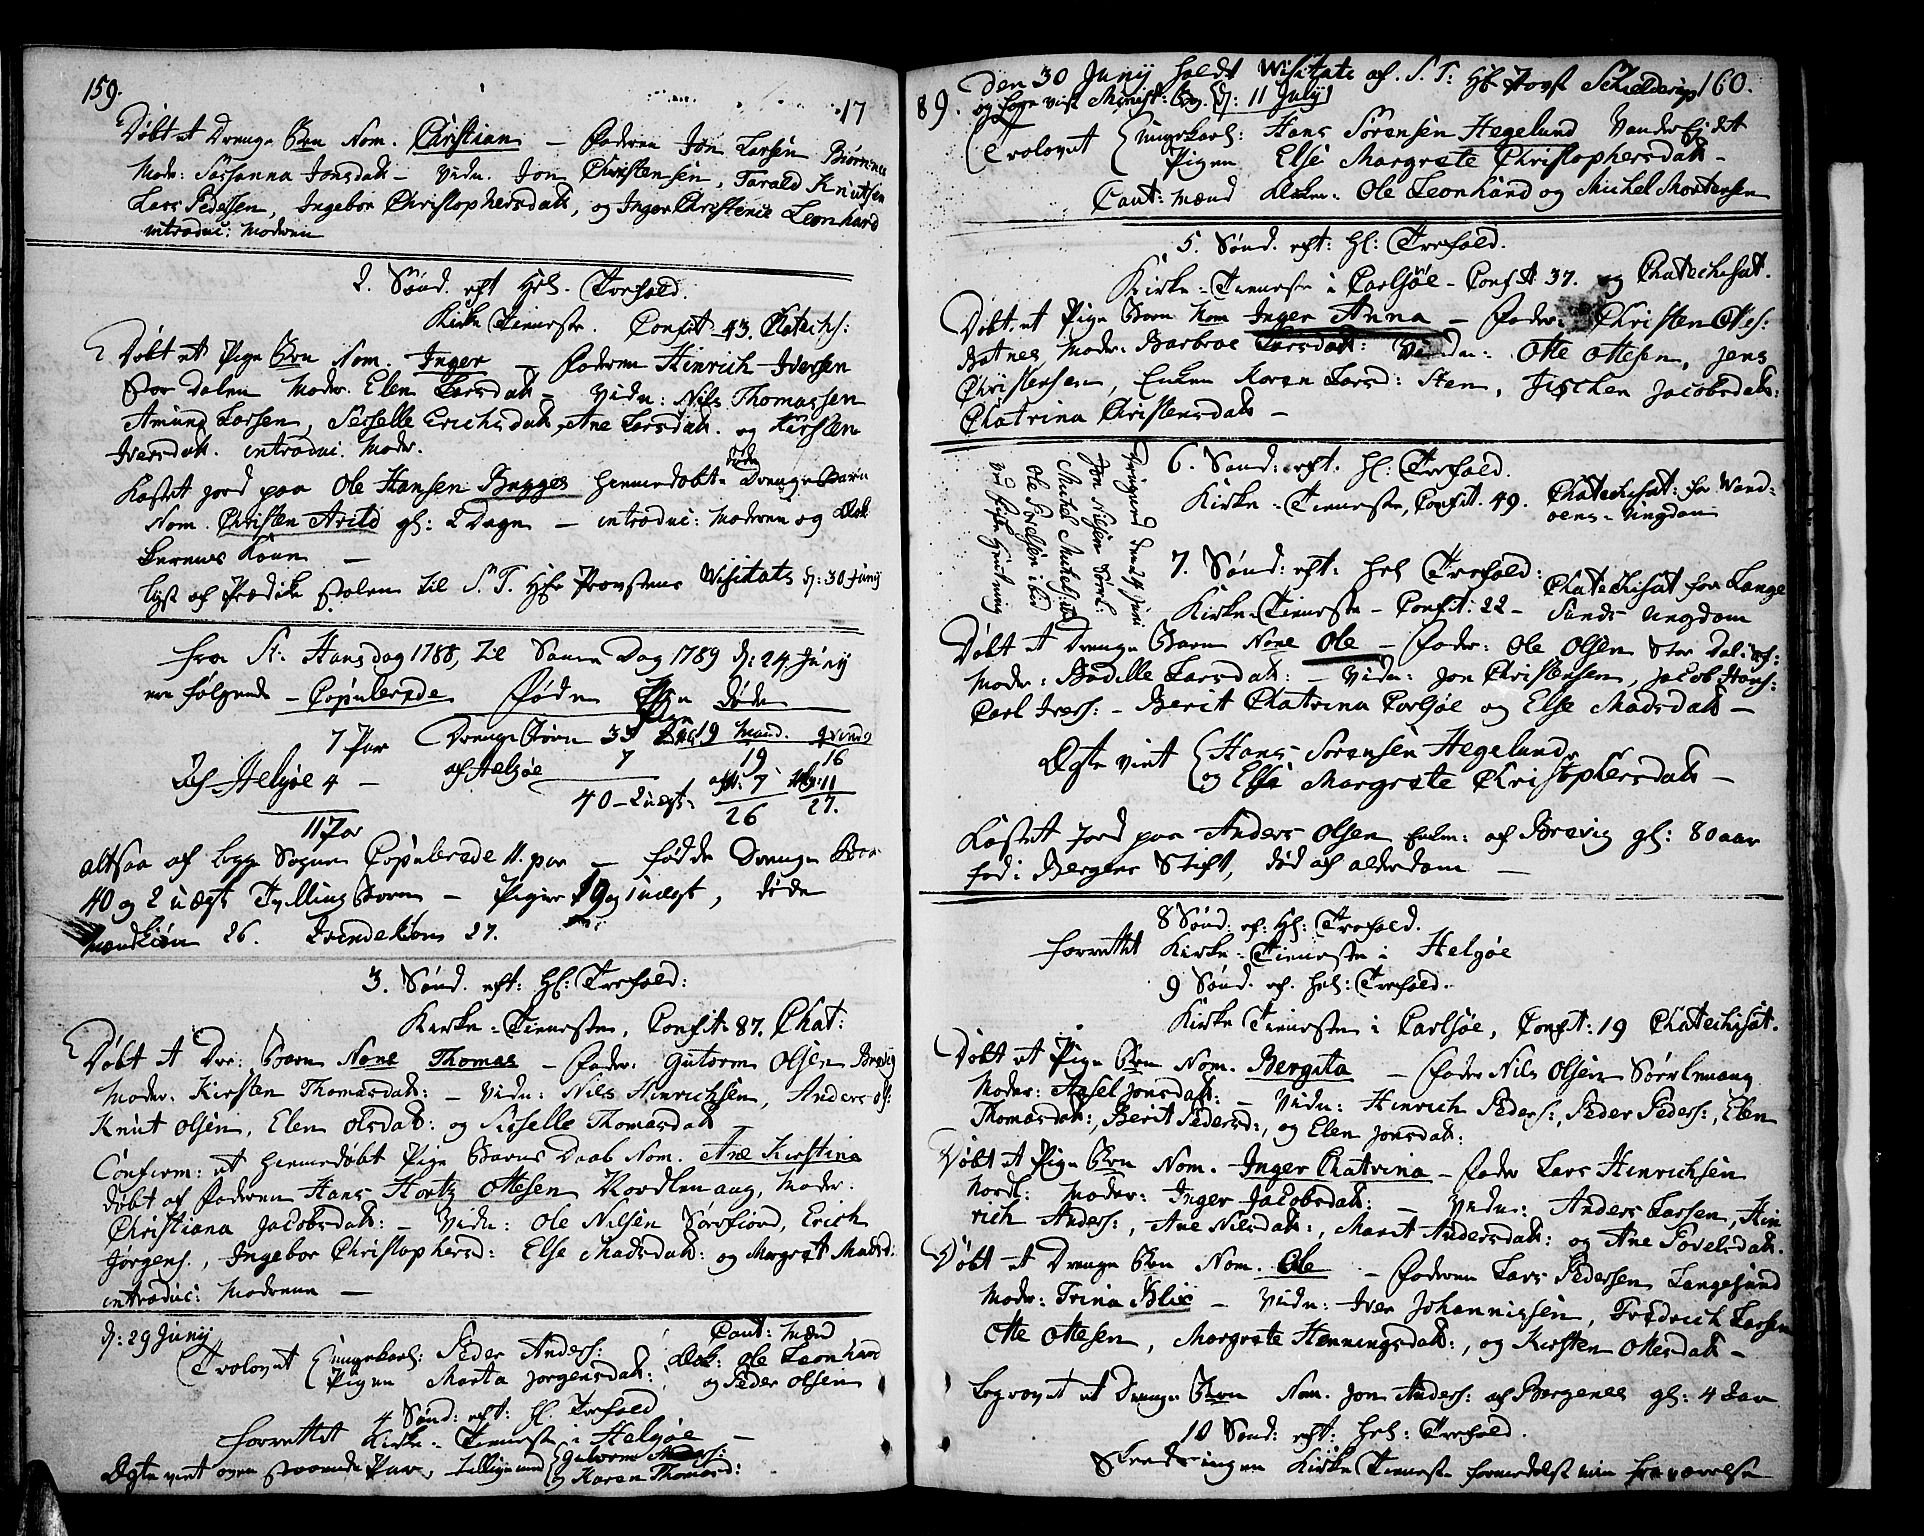 159.
17
Døbt et Drenge Barn Nom. Christian – Faderen Jon Larsen Biørnnes
Moder: Sossanna Jonsdatr – Vidn. Jon Christensen, Tarald Knutsen
Lars Pedersen, Ingebor Christophersdatr, og Inger Christence Leonhard
introduc: Moderen
2. Sønd. eft Hel. Trefold.
Kirke Tieneste. Confit. 43. Chatechs:
Døbt et Pige Barn Nom. Inger – Faderen Hinrich Iversen
Stor dalen Moder. Elen Larsdatr – Vidn: Nils Thomassen
Amund Larsen, Sesselle Erichsdatr, Ane Larsdatr. og Kirsten
Iversdatr. introduc. Moder.
Kastet Jord paa Ole Hansen Bugges hiemmedøbt døde Drenge Barn
Nom. Christen Arild gl: 2 Dage – introduc: Moderen og Klok
kerens Kone –
lyst af Prædike stolen til S. T. Hr Provstens Visitats d: 30 Junij
fra St: Hansdag 1788, til Samme Dag 1789 d: 24. Junij
ere følgende – Copulerede Fødde Børn Døde
7 Par Drenge Børn 33 19 Mand. Qvind
af Helgøe 7 19 16
Af Helgøe 4 – af H: 7 Helg: 11
40 – 2 uægt: 26 27.
11 Par
altsaa af begge Sogne Copulerede 11. par – fødde Drenge Børn
40 og 2 uægt Tvilling Børn – Piger 19 og 1 uægt, døde
Mandkiøn 26. Qvindekiøn 27.
3. Sønd. eft: Hl: Trefold:
Kirke-Tieneste, Confit: 87. Chat:
Døbt et Dre: Barn None Thomas – Fader: Gutorm Olsen Brevig
Moder. Kirsten Thomasdatr: – Vidn: Nils Hinrichsen, Anders Ols:
Knut Olsen, Elen Olsdatr: og Sisselle Thomasdatr
Confirm: et hiemmedøbt Pige Barns Daab Nom. Ane Kirstina
døbt af Faderen Hans Hortz Ottesen Nordlenang, Moder.
Christiana Jacobsdatr: – Vidn: Ole Nilsen Sørfiord, Erich
Jørgens., Ingebor Christophersd: Else Madsdatr: og Margret Madsd:
introduc: Moderen –
d: 29 Junij
Trolovet ungekarl: Peder Anders: Caut: Mænd
Pigen Marta Jørgensdatr: Klok: Ole Leonhard
og Peder Olsen
4 Sønd: eft: Hl. Trefold
forrettet Kirke-Tieneste i Helgøe –
Ægte viet oven staaende Par, tilligemed Gutorm Anders:
og Karen Thomasd:
89. Den 30 Junij holdt Visitats af S. T: Hr Provst Schielderup 160.
d: 11 Julij
Trolovet Ungekarl: Hans Sørensen Hegelund
Pigen Else Margrete Christophersdatr –
Caut: Mænd Klokker: Ole Leonhard og Michel Mortensen
5. Sønd. eft: Hl: Trefold.
Kirke-Tieneste i Carlsøe – Confit 37. og Chatechisat.
Døbt, et Pige Barn Nom Inger Anna – Fader: Christen Ottes:
Batnes Moder: Barbroe Larsdatr: Vidn: Otte Ottesen, Jens
Christensen, Enken Maren Larsd: Sten, Fischen Jacobsdatr:
Chatrina Christensdatr –
6. Sønd: eft: Hl: Trefold.
Kirke-Tieneste, Confit. 49. Chatechisat: for Vand-
øens-Ungdom
7. Sønd: eft: Hel Trefold:
Kirke-Tieneste – Confit: 22 – Chatechisat for Lange
Sunds Ungdom
Døbt et Drenge Barn None Ole – Fader: Ole Olsen Stor Dal:
Moder: Bodille Larsdatr: – Vidn: Jon Christensen, Jacob Hans:
Carl Ivers: – Berit Chatrina Carlsøe og Else Madsdatr –
Ægte viet Hans Sørensen Hegelund
og Else Margrete Christophersdatr –
Kastet Jord paa Anders Olsen af Brevig gl: 80 aar
fød i Bergens Stift, død af alderdom –
8 Sønd: ef: Hl: Trefold.
forrettet Kirke-Tieneste i Helgøe
9 Sønd. ef. Hel: Trefold.
Kirke Tieneste i Carlsøe, Confit: 19 Chatechisat.
Døbt et Pige Barn Nom. Bergita – Fader Nils Olsen Sørlenang
Moder: Axsel Jonsdatr: – Vidn: Hinrich Peders:, Peder Peders:, Elen
Thomasdatr:, Berit Pedersd:, og Elen Jonsdatr:
Døbt et Pige Barn Nom. Inger Chatrina – Fader Lars Hinrichsen
Nordl: Moder: Inger Jacobsdatr: – Vidn: Anders Larsen, Hin
rich Anders:, Ane Nilsdatr:, Marit Andersdatr: og Ane Povelsdatr.
Døbt et Drenge Barn Nom. Ole – Faderen Lars Pedersen Langesund
Moder: Trina Blix – Vidn: Iver Johannissen, Fredrich Larsen
Otte Ottesen, Margrete Henningsdatr:, og Kirsten Ottesdatr –
Begravet et Drenge Barn Nom. Jon Anders: af Bergenes gl: 4 Aar
10 Sønd: eft: Hel: Trefold.
Skeede ingen Kirke Tieneste formedelst min fraværelse